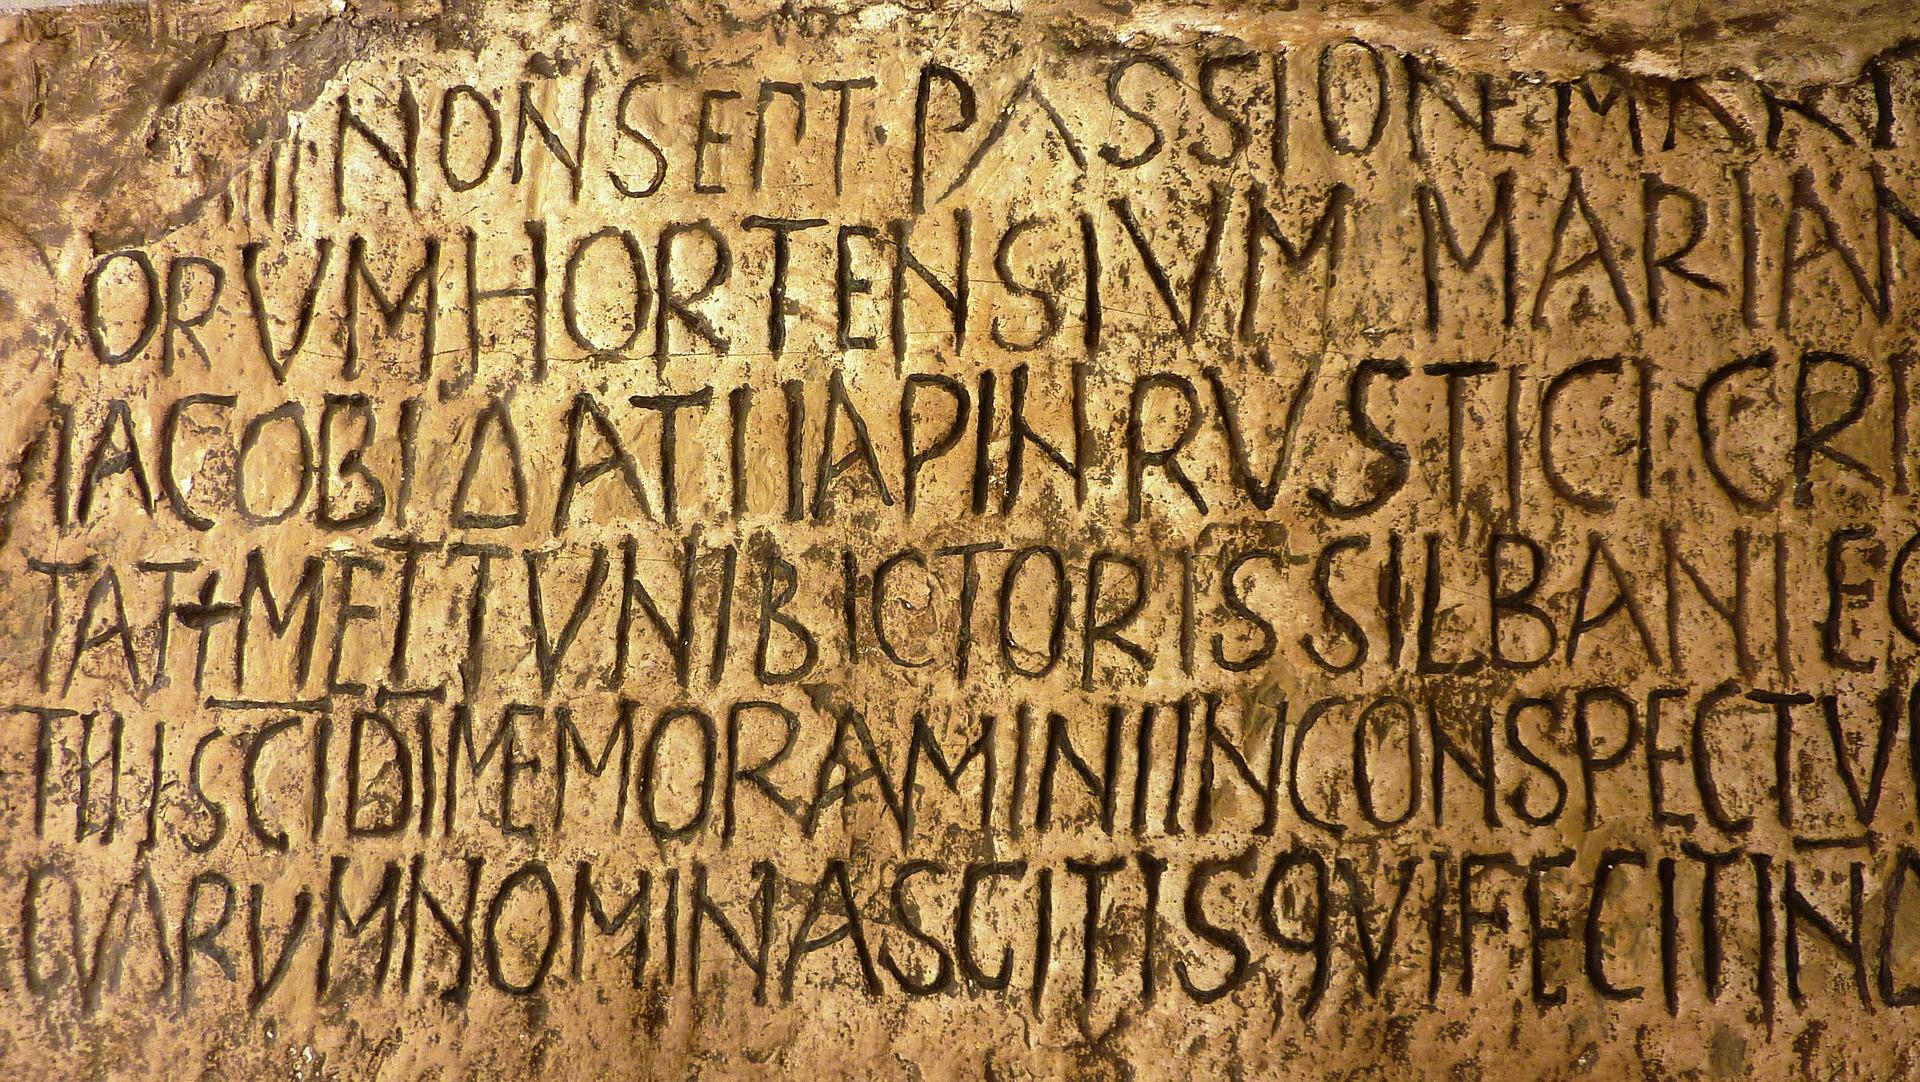 III NON SEPT · PASSIONE
ORVM HORTENSIVM MARIAN
IACOBI ΔATI IAPIN RVSTICI CRI
TAT + METTVNI BICTORIS SILBANI EG
TII SCI DI MEMORAMINI IN CONSPECTV
QVARVM NOMINA SCIT IS QVI FECIT IND